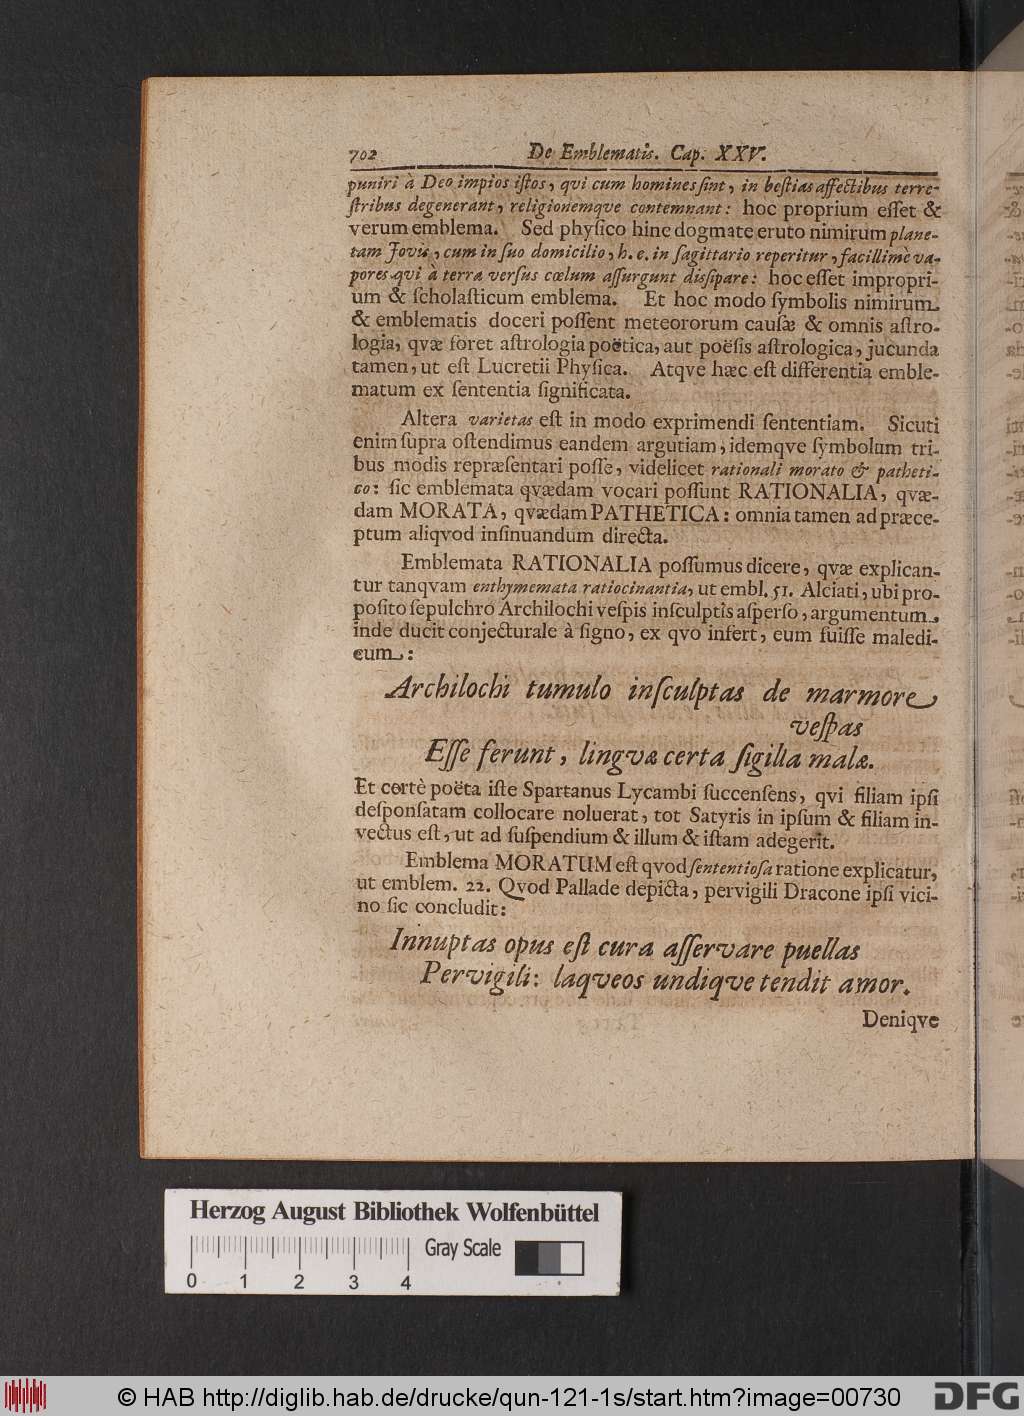 702 De Emblematis. Cap. XXV.
puniri à Deo impios iſtos, qvi cum homines ſint, in beſtias affectibus terre-
ſtribus degenerant, religionemqve contemnant: hoc proprium eſſet &
verum emblema. Sed phyſico hinc dogmate eruto nimirum plane-
tam Jovis, cum in ſuo domicilio, h. e. in ſagittario reperitur, facillimè va-
pores qvi à terra verſus cœlum aſſurgunt diſſipare: hoc eſſet impropri-
um & ſcholaſticum emblema. Et hoc modo ſymbolis nimirum
& emblematis doceri poſſent meteororum cauſæ & omnis aſtro-
logia, qvæ foret aſtrologia poëtica, aut poëſis aſtrologica, jucunda
tamen, ut eſt Lucretii Phyſica. Atqve hæc eſt differentia emble-
matum ex ſententia ſignificata.
Altera varietas eſt in modo exprimendi ſententiam. Sicuti
enim ſupra oſtendimus eandem argutiam, idemqve ſymbolum tri-
bus modis repræſentari poſſe, videlicet rationali morato & patheti-
co: ſic emblemata qvædam vocari poſſunt RATIONALIA, qvæ-
dam MORATA, qvædam PATHETICA: omnia tamen ad præce-
ptum aliqvod inſinuandum directa.
Emblemata RATIONALIA poſſumus dicere, qvæ explican-
tur tanqvam enthymemata ratiocinantia, ut embl. 51. Alciati, ubi pro-
poſito ſepulchro Archilochi veſpis inſculptis aſperſo, argumentum,
inde ducit conjecturale à ſigno, ex qvo infert, eum fuiſſe maledi-
cum:
Archilochi tumulo inſculptas de marmore
veſpas
Eſſe ferunt, lingvæ certa ſigilla malæ.
Et certè poëta iſte Spartanus Lycambi ſuccenſens, qvi filiam ipſi
deſponſatam collocare noluerat, tot Satyris in ipſum & filiam in-
vectus eſt, ut ad ſuſpendium & illum & iſtam adegerit.
Emblema MORATUM eſt qvod ſententioſa ratione explicatur,
ut emblem. 22. Qvod Pallade depicta, pervigili Dracone ipſi vici-
no ſic concludit:
Innuptas opus eſt cura aſſervare puellas
Pervigili: laqveos undiqve tendit amor.
Deniqve
Herzog August Bibliothek Wolfenbüttel
Gray Scale
0 1 2 3 4
© HAB http://diglib.hab.de/drucke/qun-121-1s/start.htm?image=00730
DFG